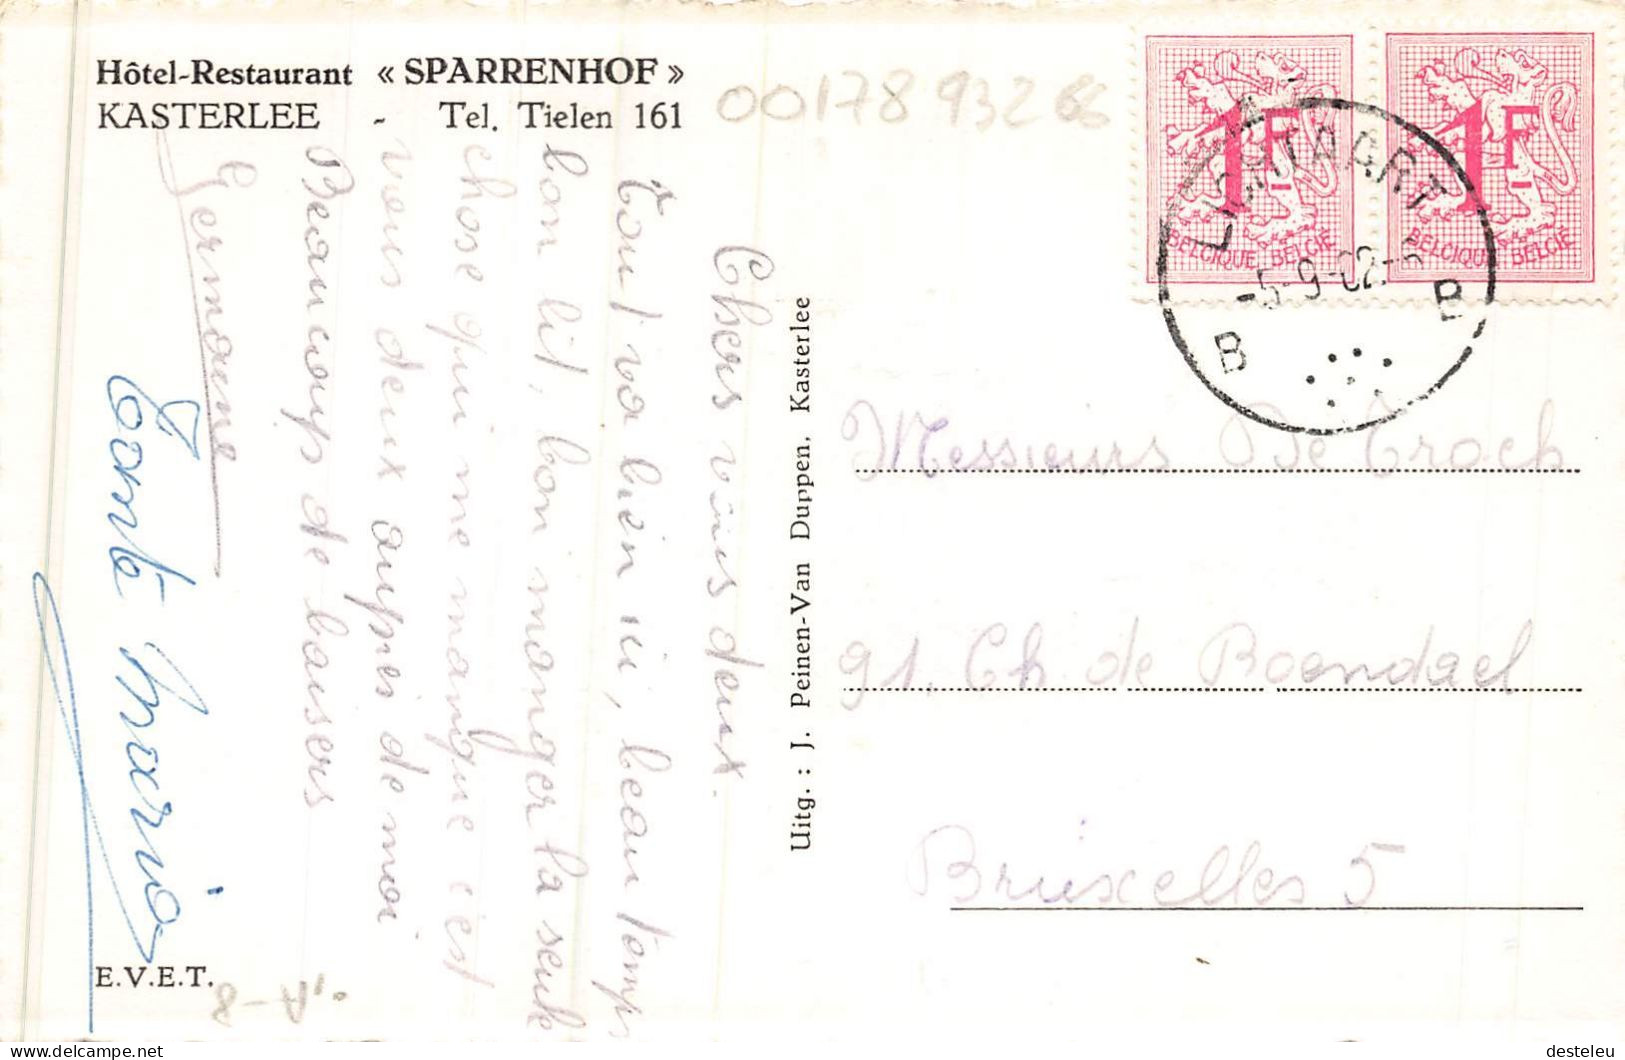 Hôtel-Restaurant « SPARRENHOF »
KASTERLEE - Tel. Tielen 161
001789326
Chers vous deux.
Tout va bien ici, beau temps
bon lit, bon manger la seule
chose qui me manque c'est
vous deux auprès de moi
Beaucoup de baisers
Germaine
Tante Maria
E.V.E.T.
A-8
Uitg. : J. Peinen-Van Duppen, Kasterlee
1F
BELGIQUE BELGIË
1F
BELGIQUE BELGIË
LICHTAART
-5-9-62
B B
Messieurs De Troch
91. Ch de Boendael
Bruxelles 5
delcampe.net
desteleu